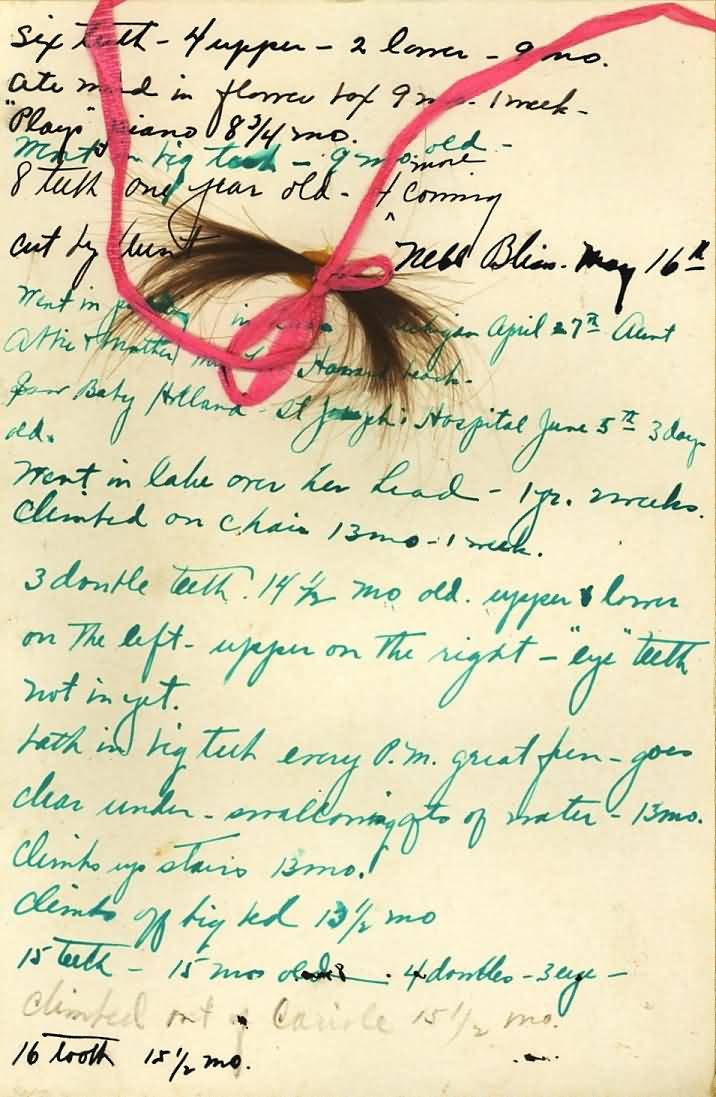 Six teeth - 4 upper - 2 lower - 9 mo.
ate mud in flower box 9 mo. 1 week -
"Plays" piano 8 3/4 mo.
Went in big tub - 9 mo. old -
8 teeth one year old - 4 more coming
cut by Aunt Nell Bliss. May 16th
Went in in Michigan April 27th Aunt
Attie + mother Howard beach.
Saw Baby Holland - St Joseph's Hospital June 5th 3 days
old.
Went in lake over her head - 1 yr. 2 weeks.
Climbed on chair 13 mo - 1 week.
3 double teeth. 14 1/2 mo old. upper & lower
on the left - upper on the right - "eye" teeth
not in yet.
bath in big tub every P.M. great fun - goes
clear under - swallowing qts of water - 13 mo.
Climbs up stairs 13 mo.
Climbs off big bed 13 1/2 mo
15 teeth - 15 mos old - 4 doubles - 3 eye -
Climbed out of Cariole 15 1/2 mo.
16 tooth 15 1/2 mo.